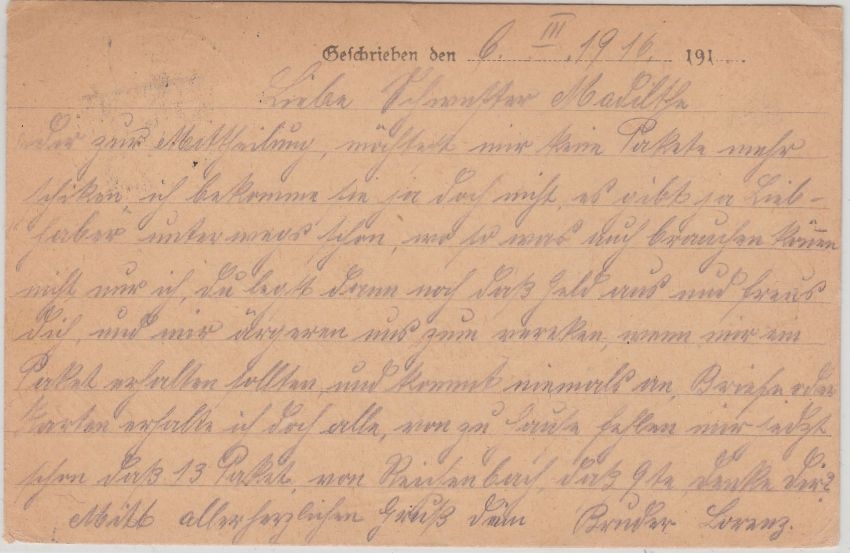 Geschrieben den 6. III. 1916. 191
Liebe Schwester
zur Mittheilung, möchtest mir keine Pakete mehr
schiken, ich bekomme sie ja doch nicht, es gibt ja Lieb-
haber unterwegs schon, wo so was auch brauchen können
nicht nur ich, Du legst dann noch daß Geld aus und freus
Dich, und mir ärgeren uns zum vereken, wenn mir ein
Paket erhalten sollten, und kommt niemals an, Briefe oder
Karten erhalte ich doch alle, von zu Hause fellen mir jedzt
schon daß 13 Paket, von Reichenbach, daß 9te, denke dir?
Mitt allerherzlichen Gruß dein Bruder Lorenz.